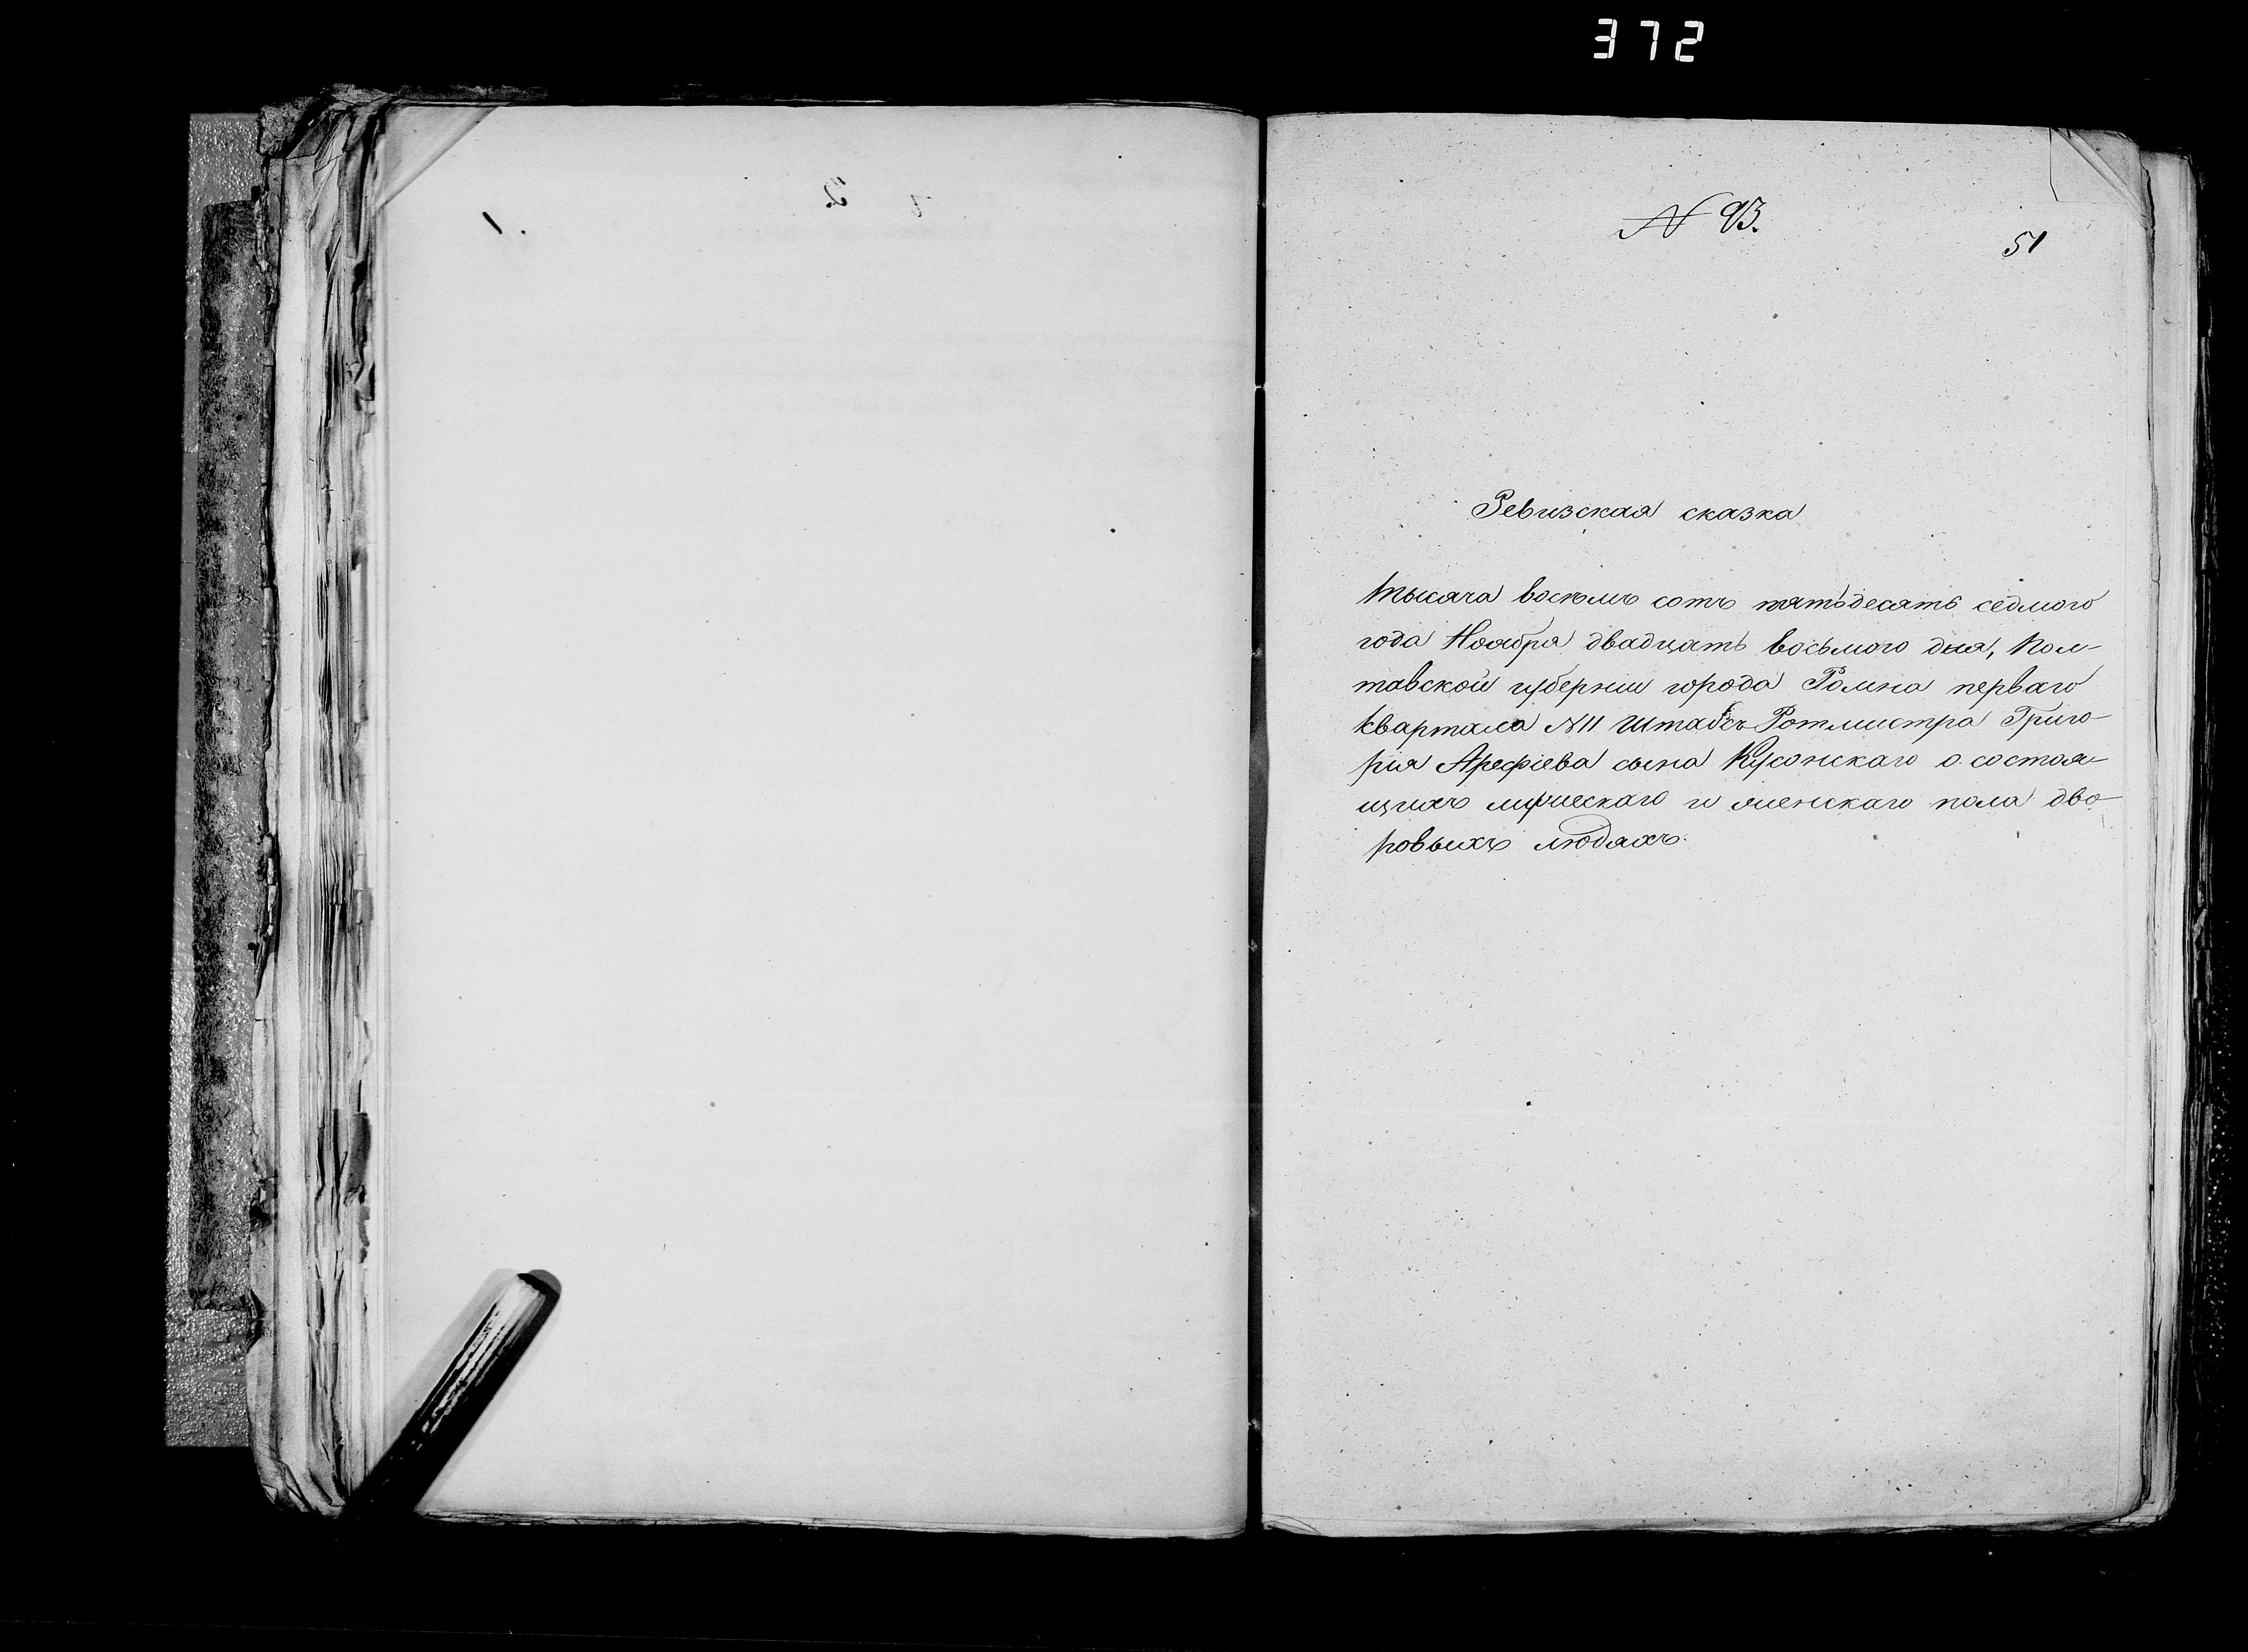 372
N 93.
51
Ревизская сказка
тысяча восемь сотъ пятьдесятъ седмого
года Ноября двадцать восьмого дня, Пол-
тавской губернии города Ромна перваго
квартала N11 Штабсъ Ротмистра Григо-
рія Арефіева сына Кусонскаго о состоя-
щихъ мужескаго и женскаго пола дво-
ровыхъ людяхъ.